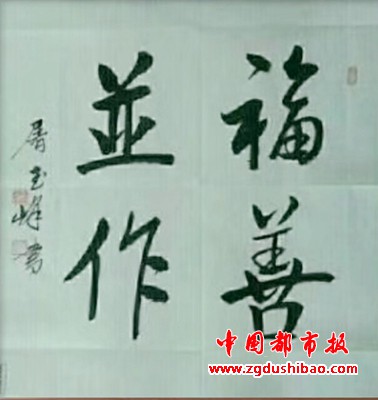 福善
並作
屠玉峰書
中国都市报
www.zgdushibao.com